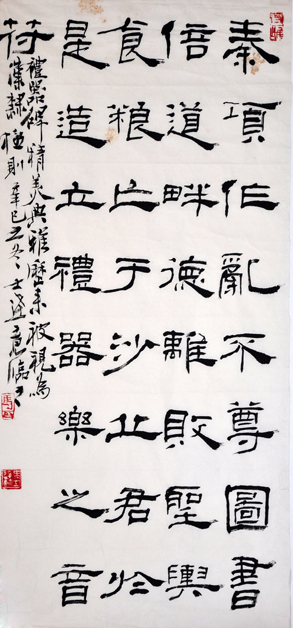 秦項作亂不尊圖書
倍道畔德離敗聖輿
食粮亡于沙丘君於
是造立禮器樂之音
符
禮器碑精美典雅歷来被視為
漢隸極則辛巳之冬士意臨